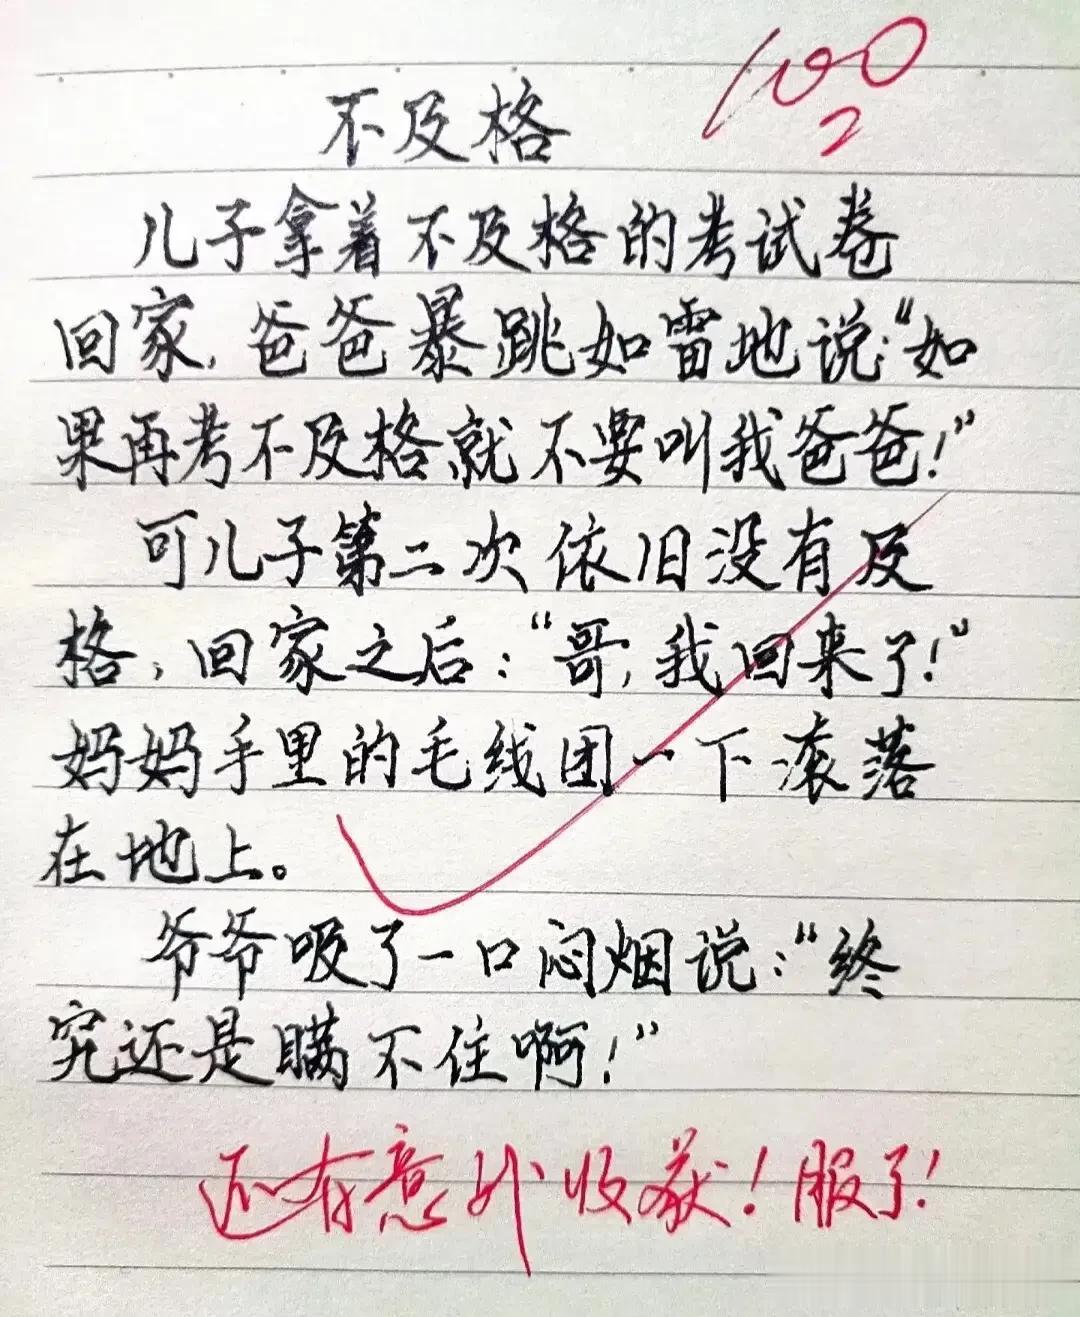 100
2
不及格
儿子拿着不及格的考试卷
回家,爸爸暴跳如雷地说:“如
果再考不及格就不要叫我爸爸!”
可儿子第二次依旧没有及
格,回家之后:“哥,我回来了!”
妈妈手里的毛线团一下滚落
在地上。
爷爷吸了一口闷烟说:“终
究还是瞒不住啊!”
还有意外收获!服了!